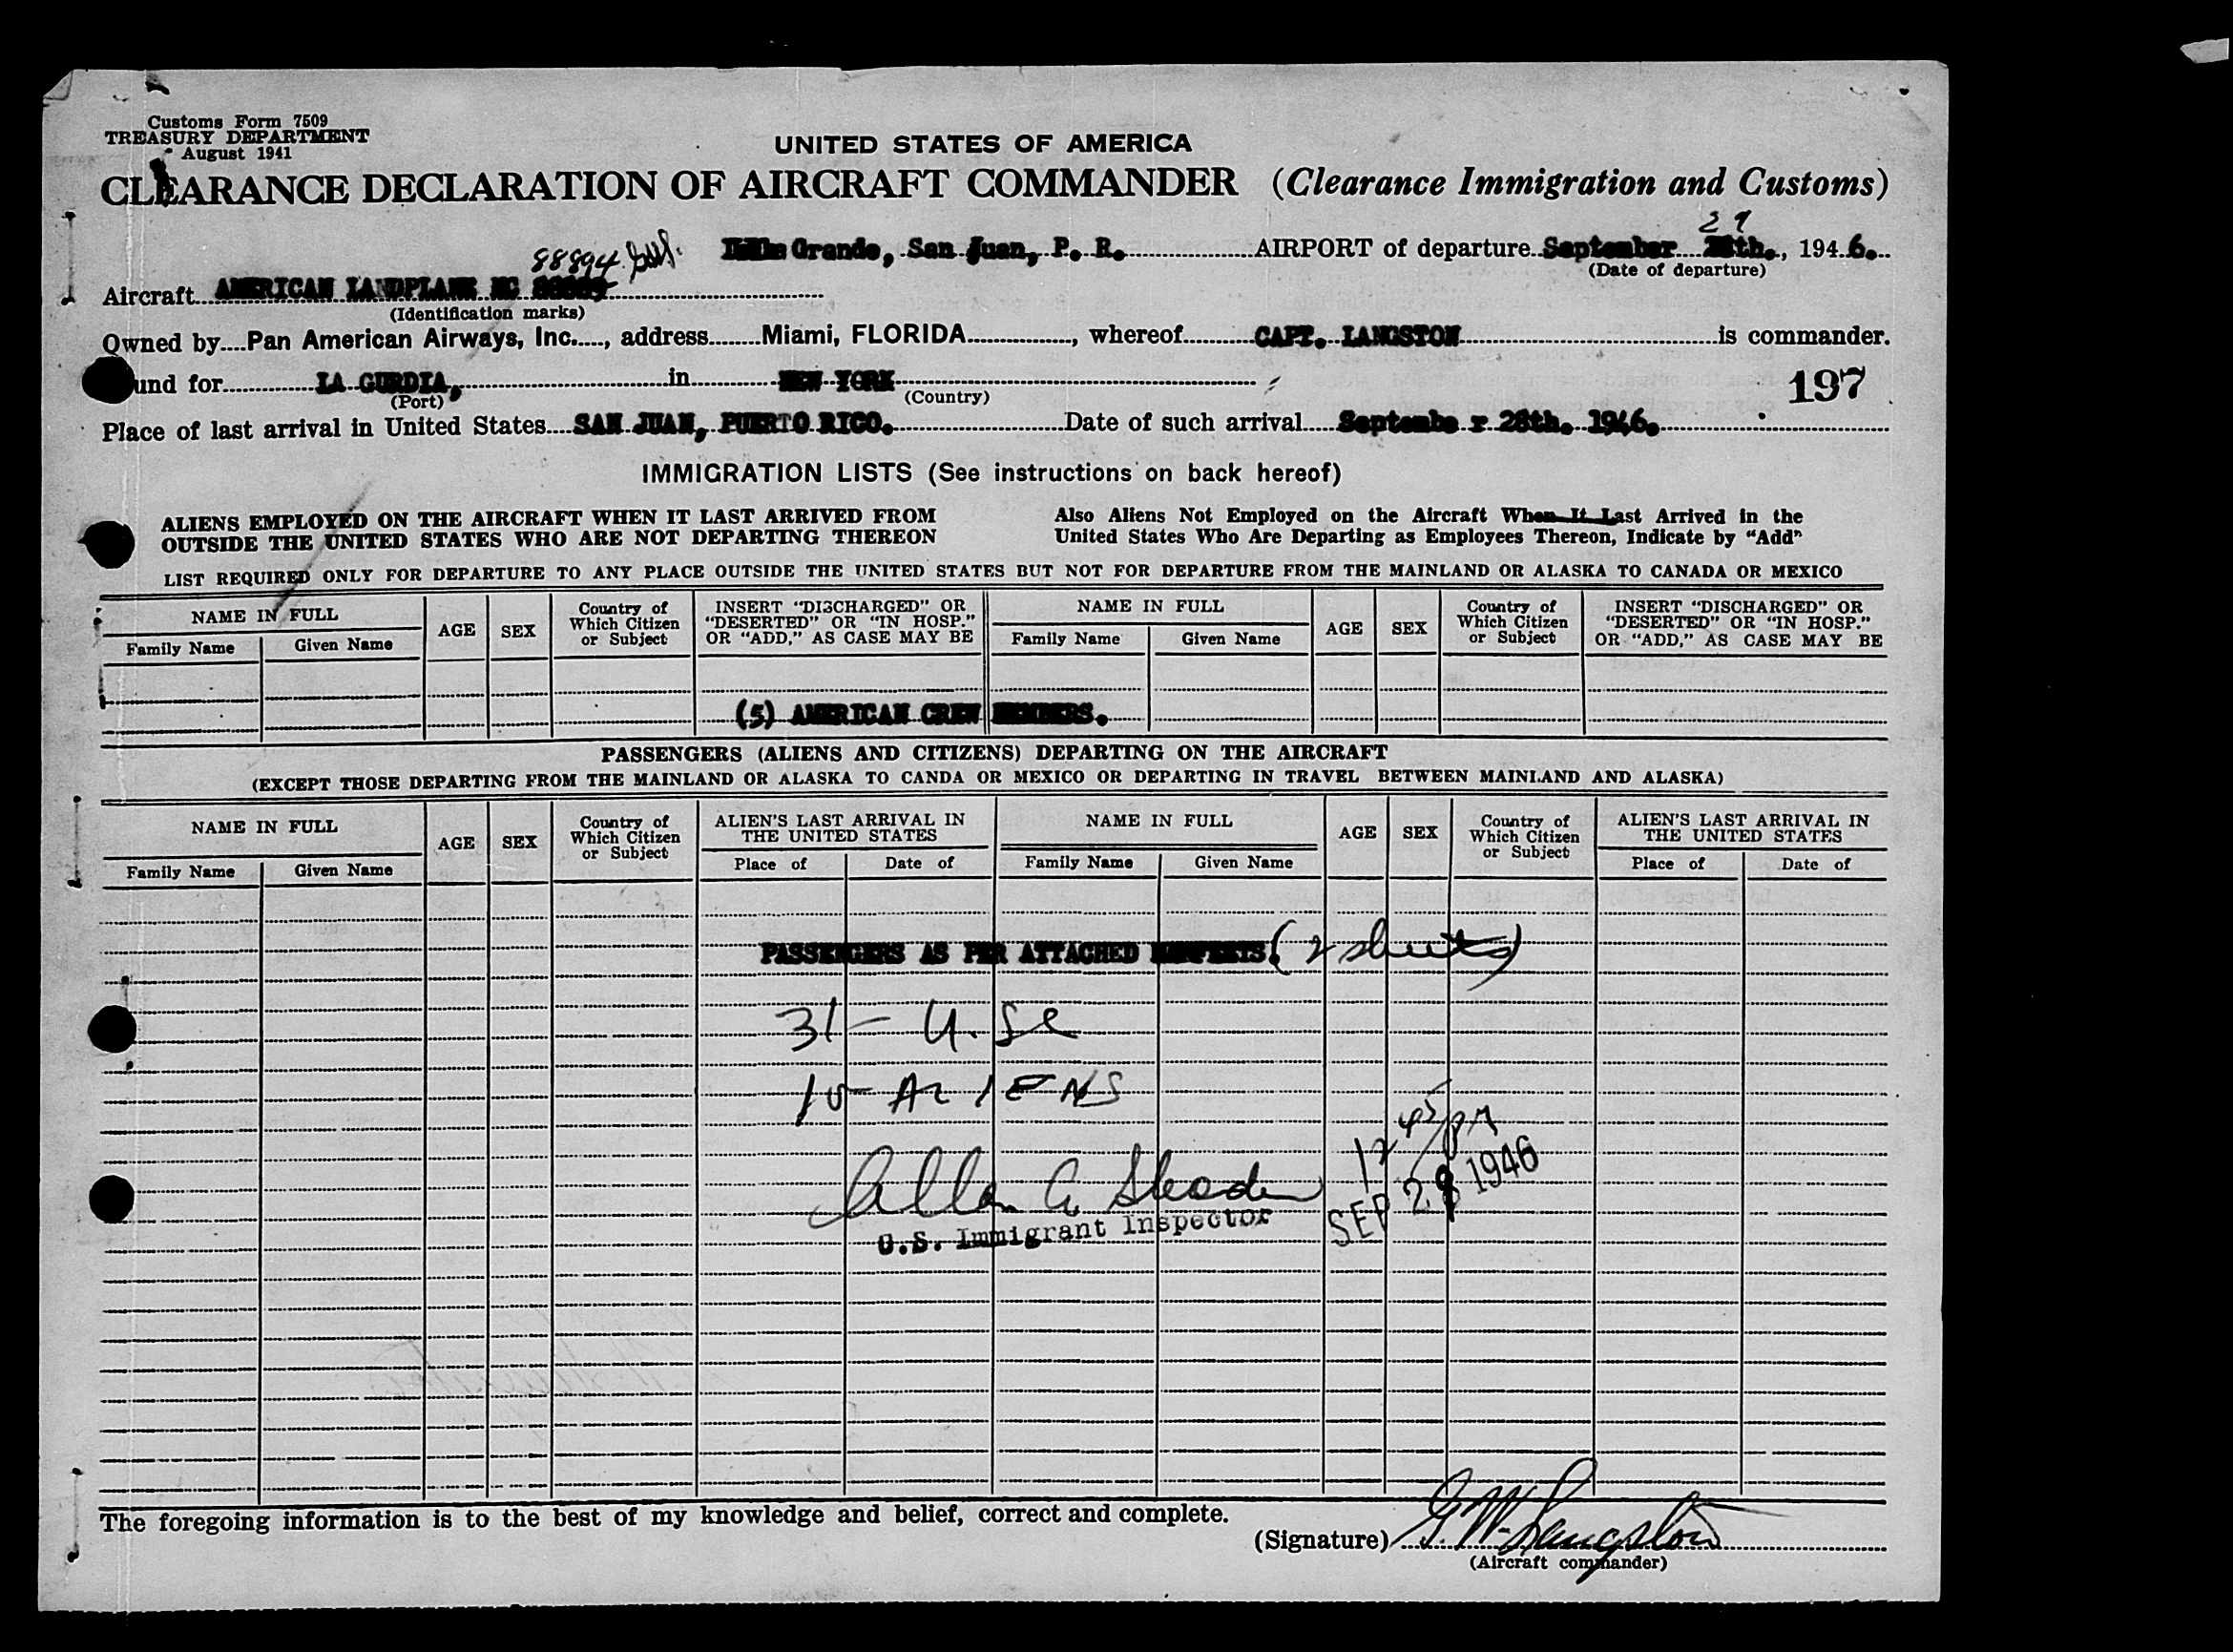 Customs Form 7509
TREASURY DEPARTMENT
August 1941
UNITED STATES OF AMERICA
CLEARANCE DECLARATION OF AIRCRAFT COMMANDER (Clearance Immigration and Customs)
29
88894
Grande, San Juan, P. R. AIRPORT of departure September 28th., 1946.
(Date of departure)
Aircraft AMERICAN LANDPLANE NC
(Identification marks)
Owned by Pan American Airways, Inc., address Miami, FLORIDA, whereof CAPT. LANGSTON is commander.
und for LA GURDIA, in NEW YORK
197
(Port) (Country)
Place of last arrival in United States SAN JUAN, PUERTO RICO. Date of such arrival Septembe r 28th. 1946.
IMMIGRATION LISTS (See instructions on back hereof)
ALIENS EMPLOYED ON THE AIRCRAFT WHEN IT LAST ARRIVED FROM
OUTSIDE THE UNITED STATES WHO ARE NOT DEPARTING THEREON
Also Aliens Not Employed on the Aircraft When It Last Arrived in the
United States Who Are Departing as Employees Thereon, Indicate by "Add"
LIST REQUIRED ONLY FOR DEPARTURE TO ANY PLACE OUTSIDE THE UNITED STATES BUT NOT FOR DEPARTURE FROM THE MAINLAND OR ALASKA TO CANADA OR MEXICO
NAME IN FULL
Family Name Given Name
AGE
SEX
Country of
Which Citizen
or Subject
INSERT "DISCHARGED" OR
"DESERTED" OR "IN HOSP."
OR "ADD," AS CASE MAY BE
NAME IN FULL
Family Name Given Name
AGE
SEX
Country of
Which Citizen
or Subject
INSERT "DISCHARGED" OR
"DESERTED" OR "IN HOSP."
OR "ADD," AS CASE MAY BE
(5) AMERICAN CREW MEMBERS.
PASSENGERS (ALIENS AND CITIZENS) DEPARTING ON THE AIRCRAFT
(EXCEPT THOSE DEPARTING FROM THE MAINLAND OR ALASKA TO CANDA OR MEXICO OR DEPARTING IN TRAVEL BETWEEN MAINLAND AND ALASKA)
NAME IN FULL
Family Name Given Name
AGE
SEX
Country of
Which Citizen
or Subject
ALIEN'S LAST ARRIVAL IN
THE UNITED STATES
Place of Date of
NAME IN FULL
Family Name Given Name
AGE
SEX
Country of
Which Citizen
or Subject
ALIEN'S LAST ARRIVAL IN
THE UNITED STATES
Place of Date of
PASSENGERS AS PER ATTACHED MANIFESTS. (2 sheets)
31 - U.SC
10 - ALIENS
12 45/PM
SEP 29 1946
Allen A.
U.S. Immigrant Inspector
The foregoing information is to the best of my knowledge and belief, correct and complete.
(Signature) G.W. Langston
(Aircraft commander)